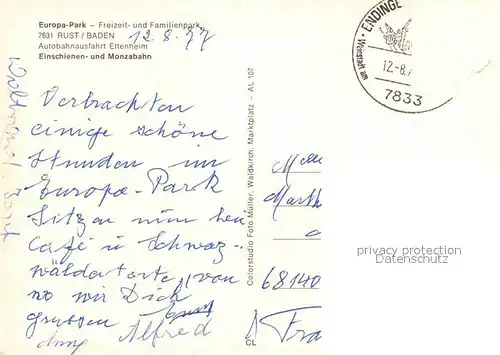 Europa-Park – Freizeit- und Familienpark
7631 RUST / BADEN 12.8.77
Autobahnausfahrt Ettenheim
Einschienen- und Monzabahn
Verbrachten
einige schöne
Stunden im
Europa-Park
Sitzen nun bei
Café u Schwarz-
wäldertorte, von
wo wir Dich
grüssen
Alfred
Colorstudio Foto Müller, Waldkirch, Marktplatz – AL 107
CL
ENDINGE
12.-8.7
7833
Marth
68140
Fra
privacy protection
Datenschutz